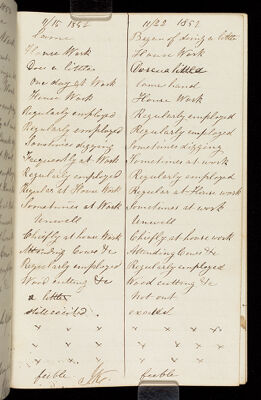 11/15 1852
Same
House Work
Does a little
one day at Work
House Work
Regularly employed
Regularly employed
Sometimes digging
Frequently at Work
Regularly employed
Regular at House Work
Sometimes at Work
Unwell
Chiefly at house Work
Attending Cows &c
Regularly employed
Wood cutting &c
a little
still excited
" " " "
" " " "
" " " "
feeble
11/22 1852
Began of doing a little
House Work
Does a little
some hand
House Work
Regularly employed
Regularly employed
Sometimes digging
Sometimes at work
Regularly employed
Regular at House work
Sometimes at work
Unwell
Chiefly at house work
Attending Cows &c
Regularly employed
Wood cutting &c
Not out
excited
" " " " "
" " " " "
" " " " "
feeble